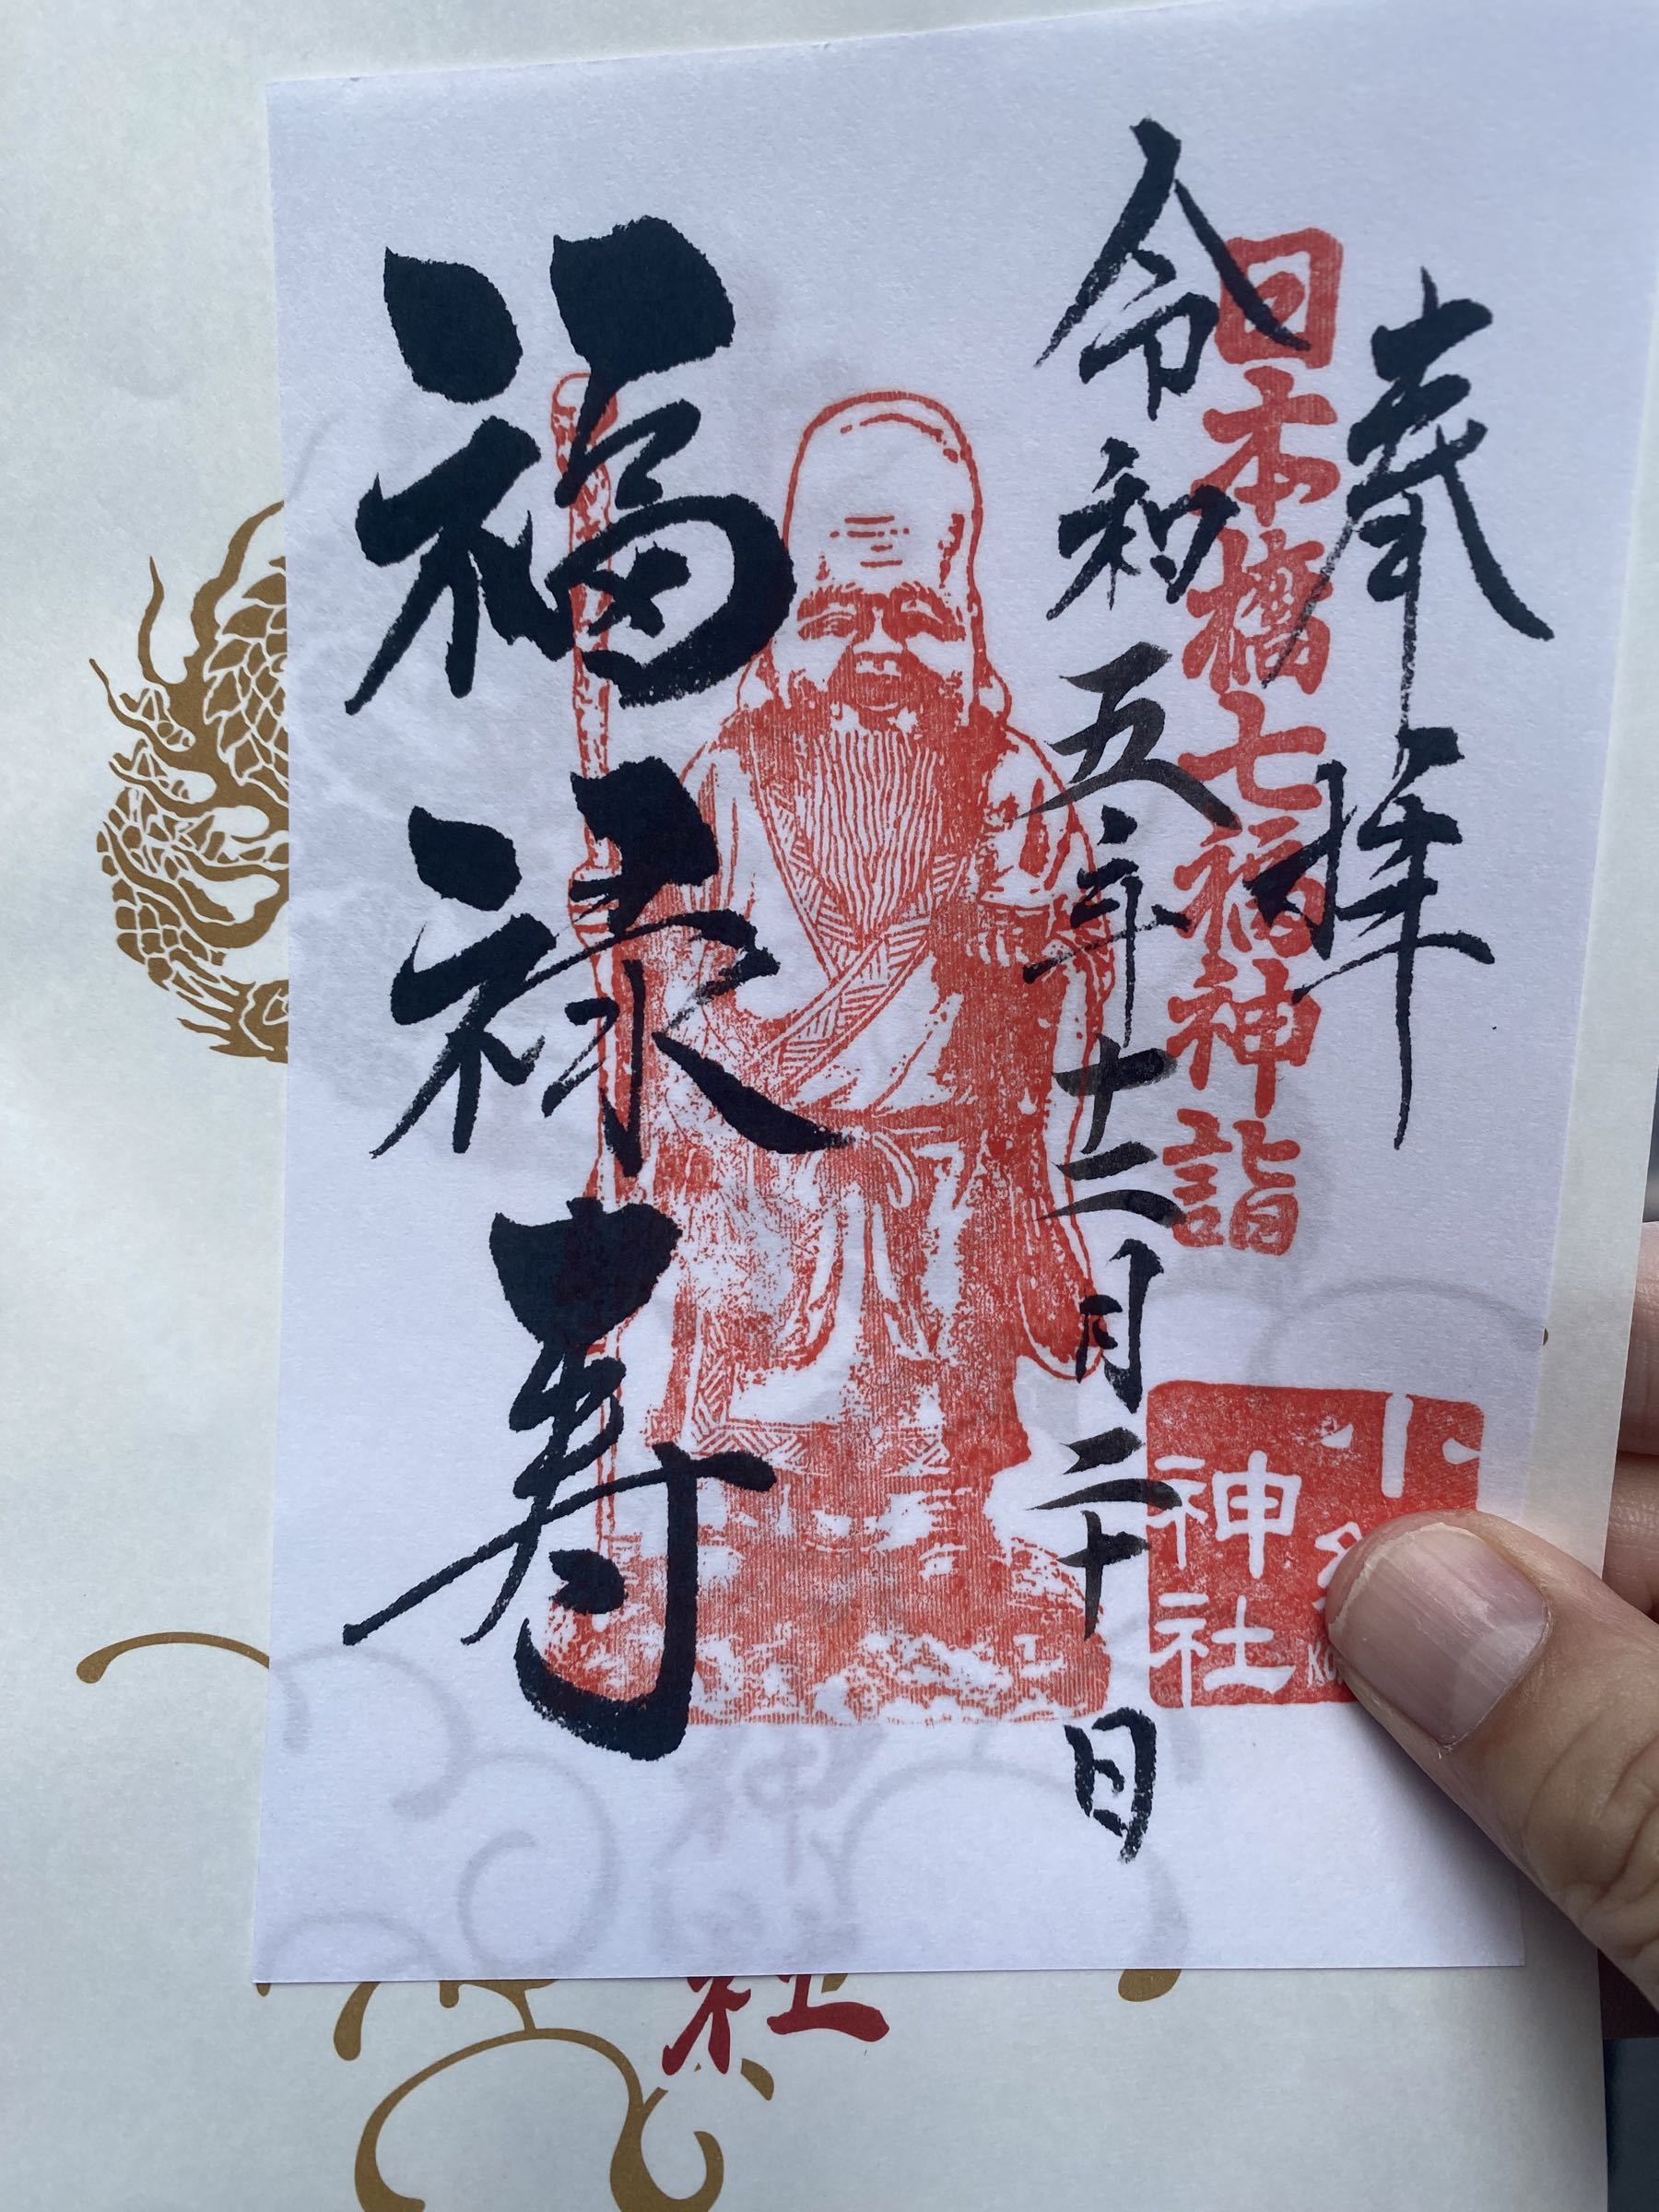 奉拝
日本橋七福神詣
令和五年十二月二十日
福禄寿
小
神社
神社